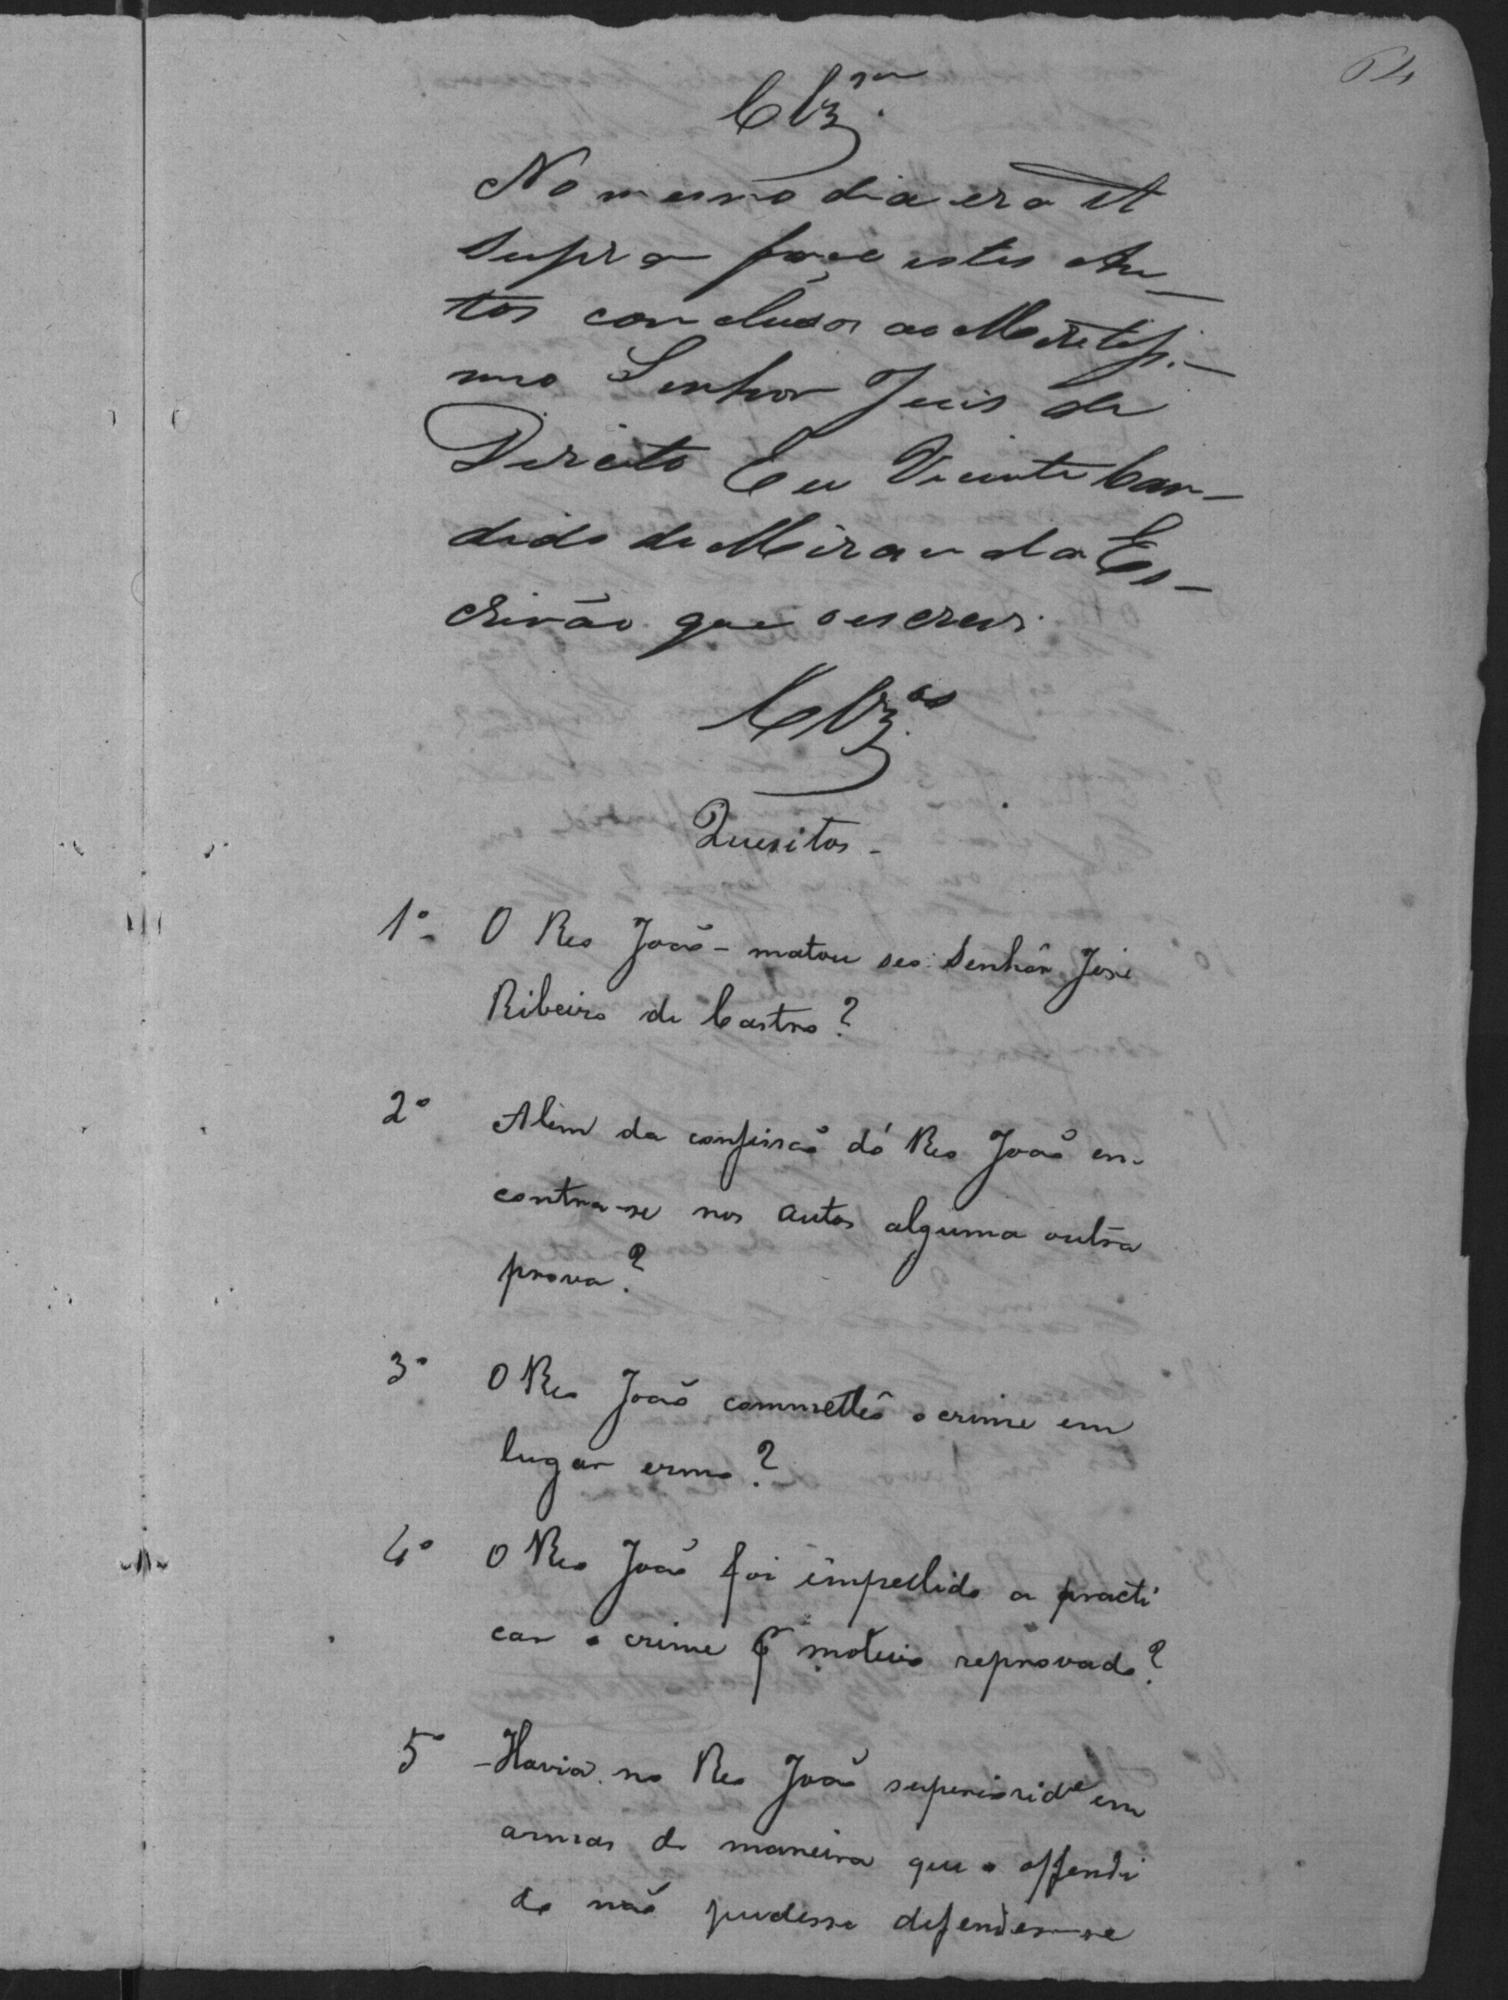 64
Clz.am
No mesmo dia era Ut
supra faço estes Au-
tos concluzos ao Meretiss.-
mo Senhor Juis de
Direito Eu Vicente Can-
dido de Miranda Es-
crivão que oescrevi.
Clz.os
Quesitos -
1º- O Reo João - matou seo Senhôr José
Ribeiro de Castro?
2º Alem da confissão do Reo João en-
contra-se nos autos alguma outra
prova?
3º O Reo João commettêo o crime em
lugar ermo?
4º O Reo João foi impellido a practi
car o crime p.r motivo reprovado?
5º Havia no Reo João superioride em
armas de maneira que o offendi
do não pudesse defender-se